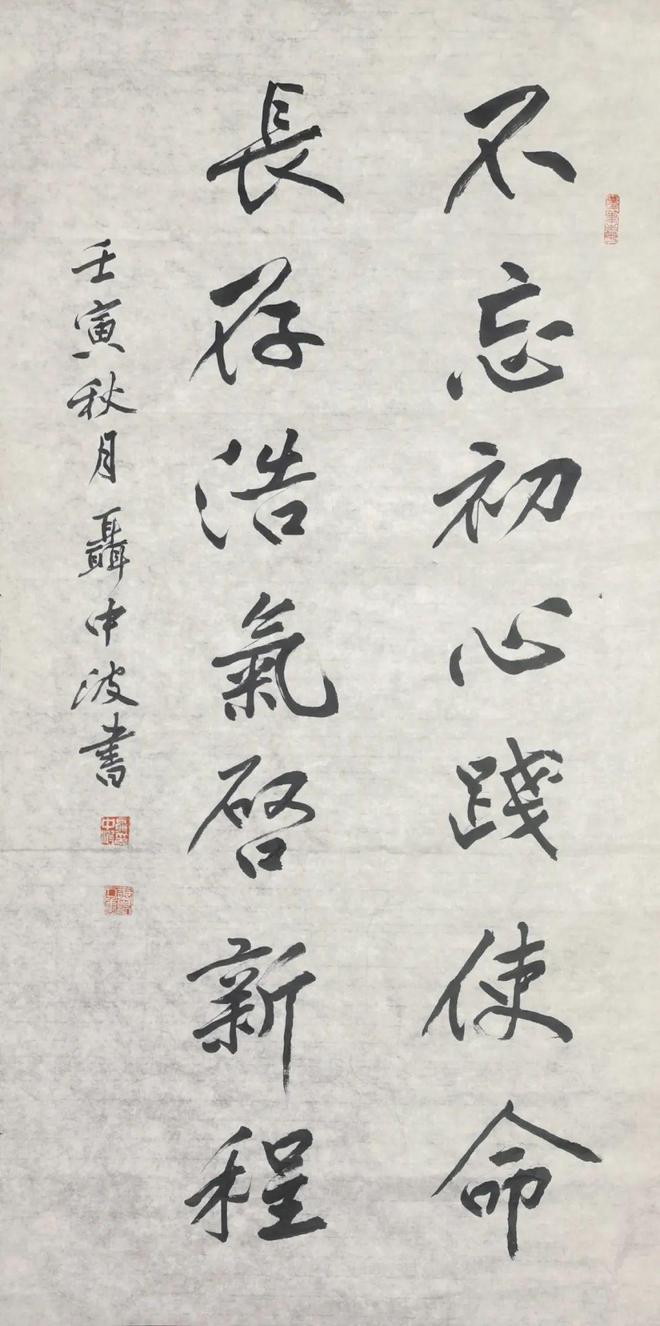 不忘初心踐使命
長存浩氣啓新程
壬寅秋月聶中波書